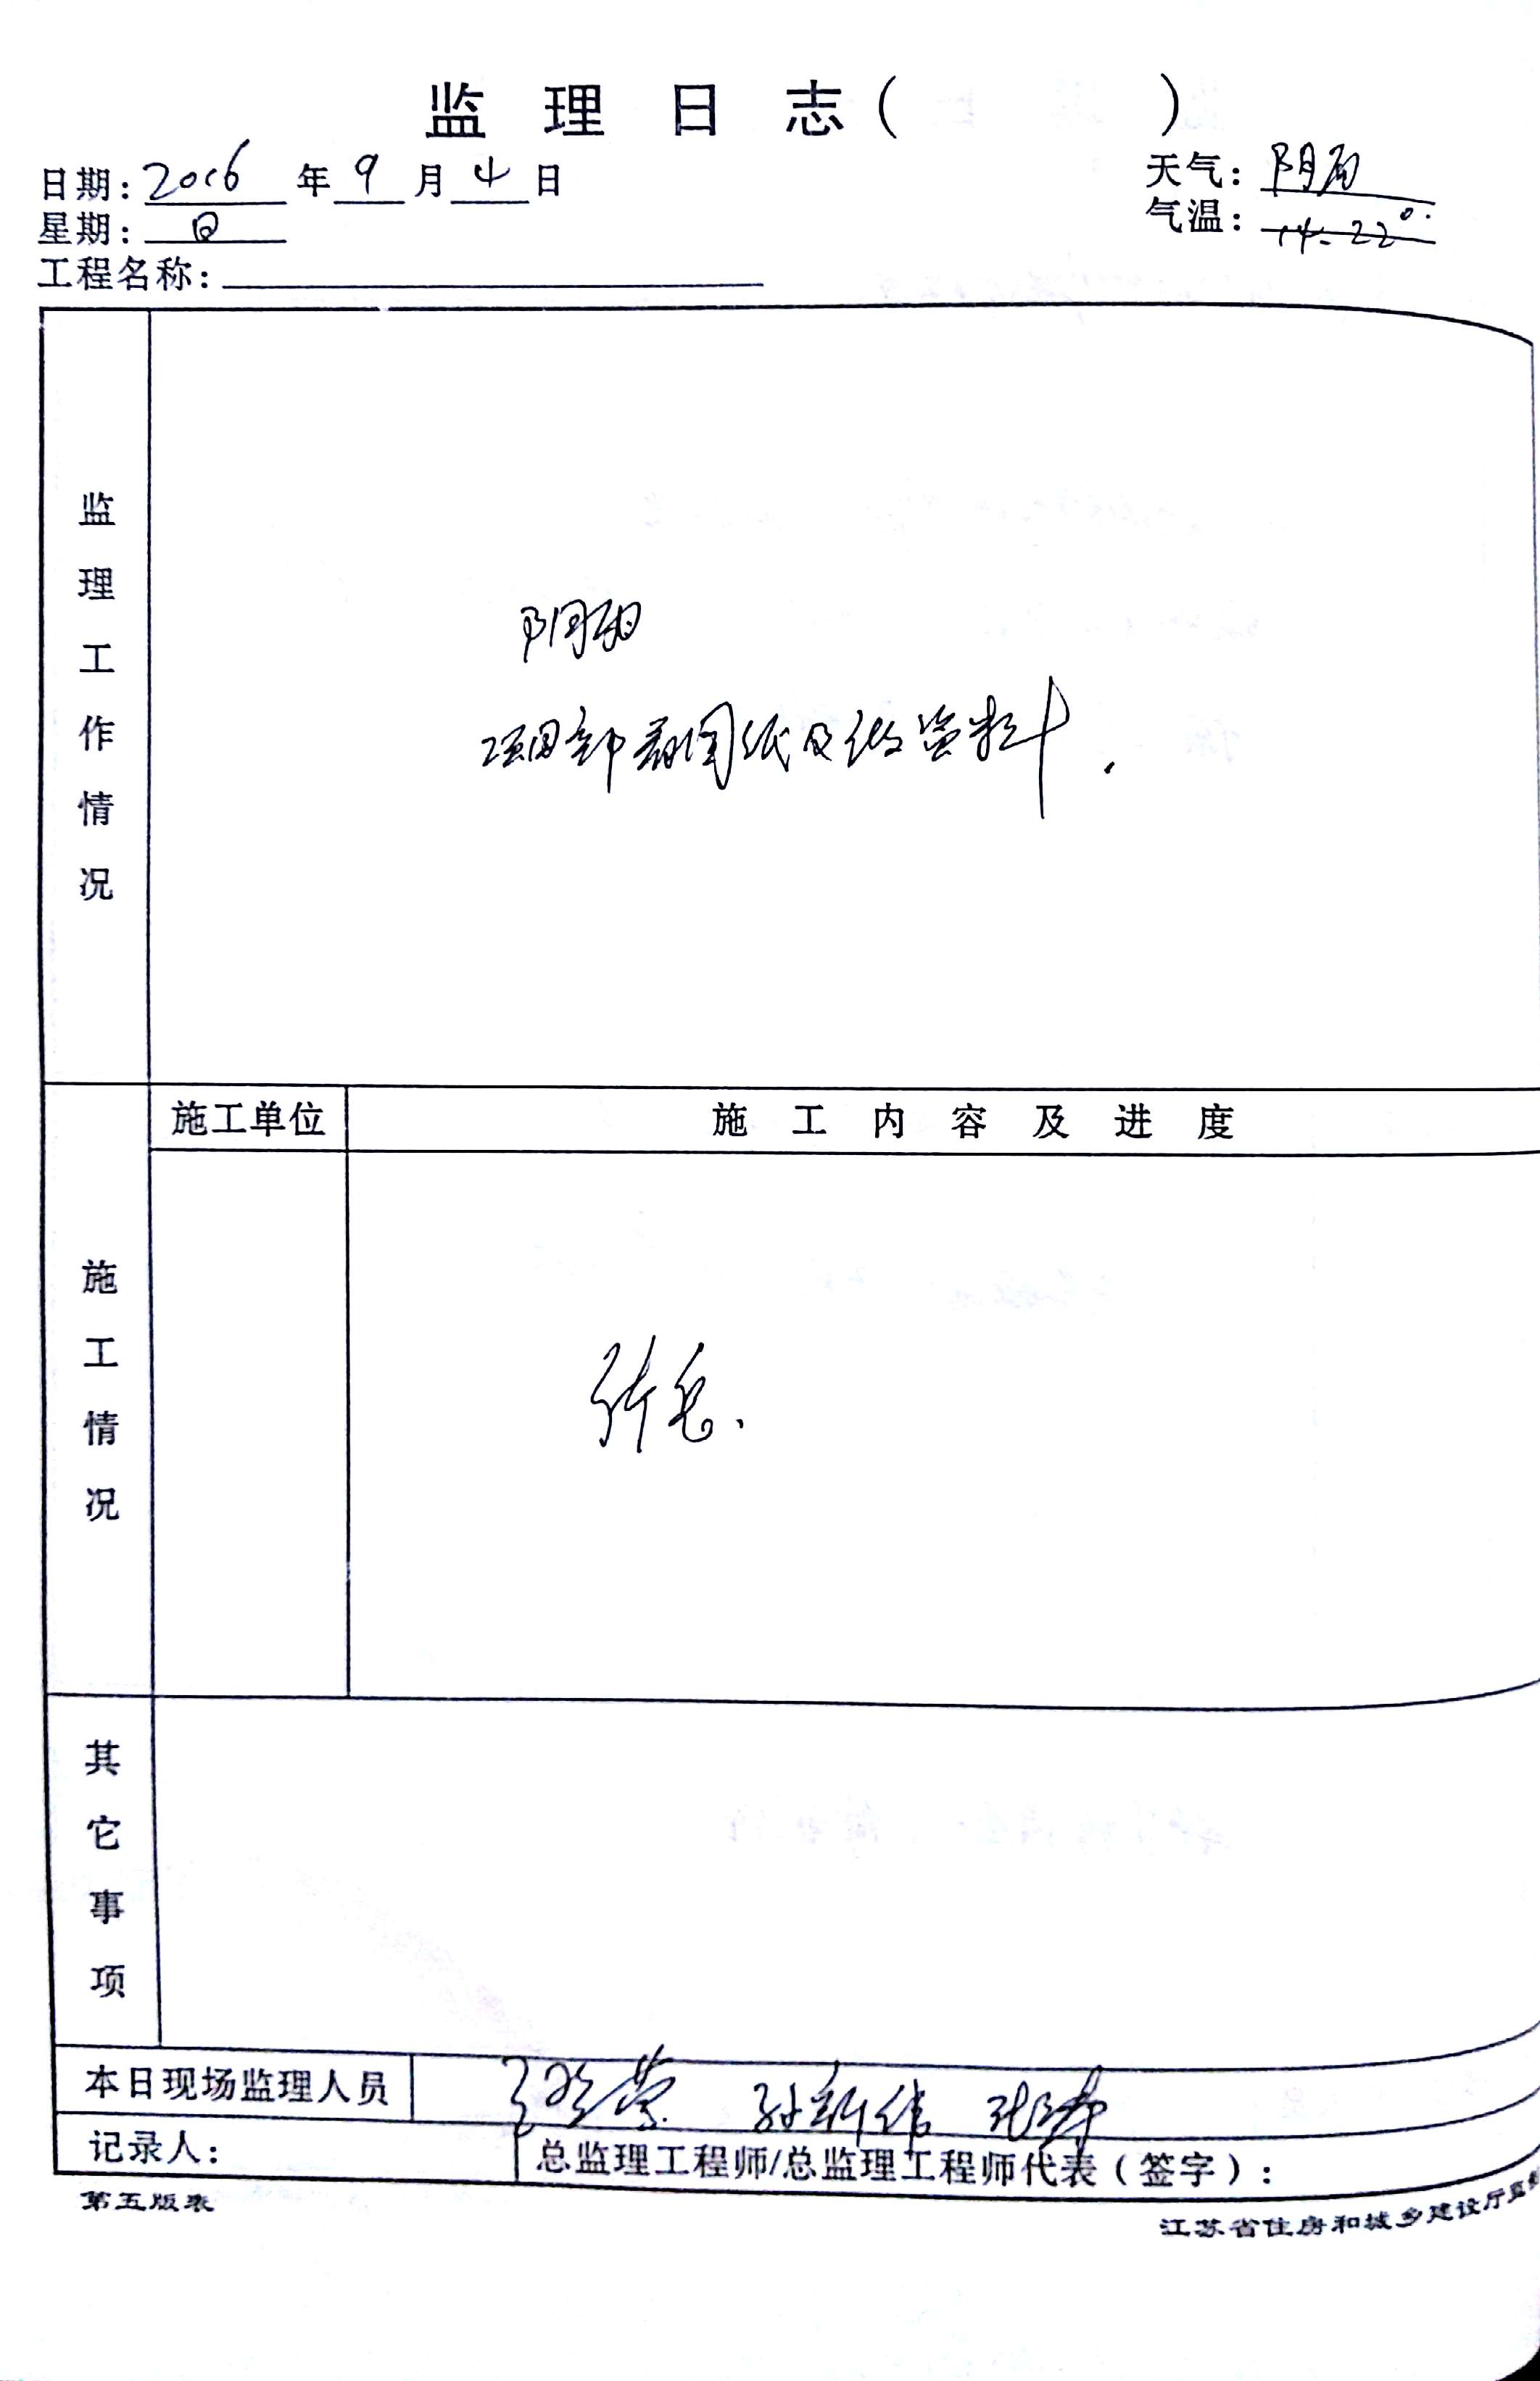 监 理 日 志（ ）
日期：2016 年 9 月 4 日
天气：阴雨
星期：日
气温：14-22°
工程名称：
监理工作情况
阴雨
项目部看图纸及做资料.
施工单位
施 工 内 容 及 进 度
施工情况
休息.
其它事项
本日现场监理人员
孙新伟
记录人：
总监理工程师/总监理工程师代表（签字）：
第五版表
江苏省住房和城乡建设厅监